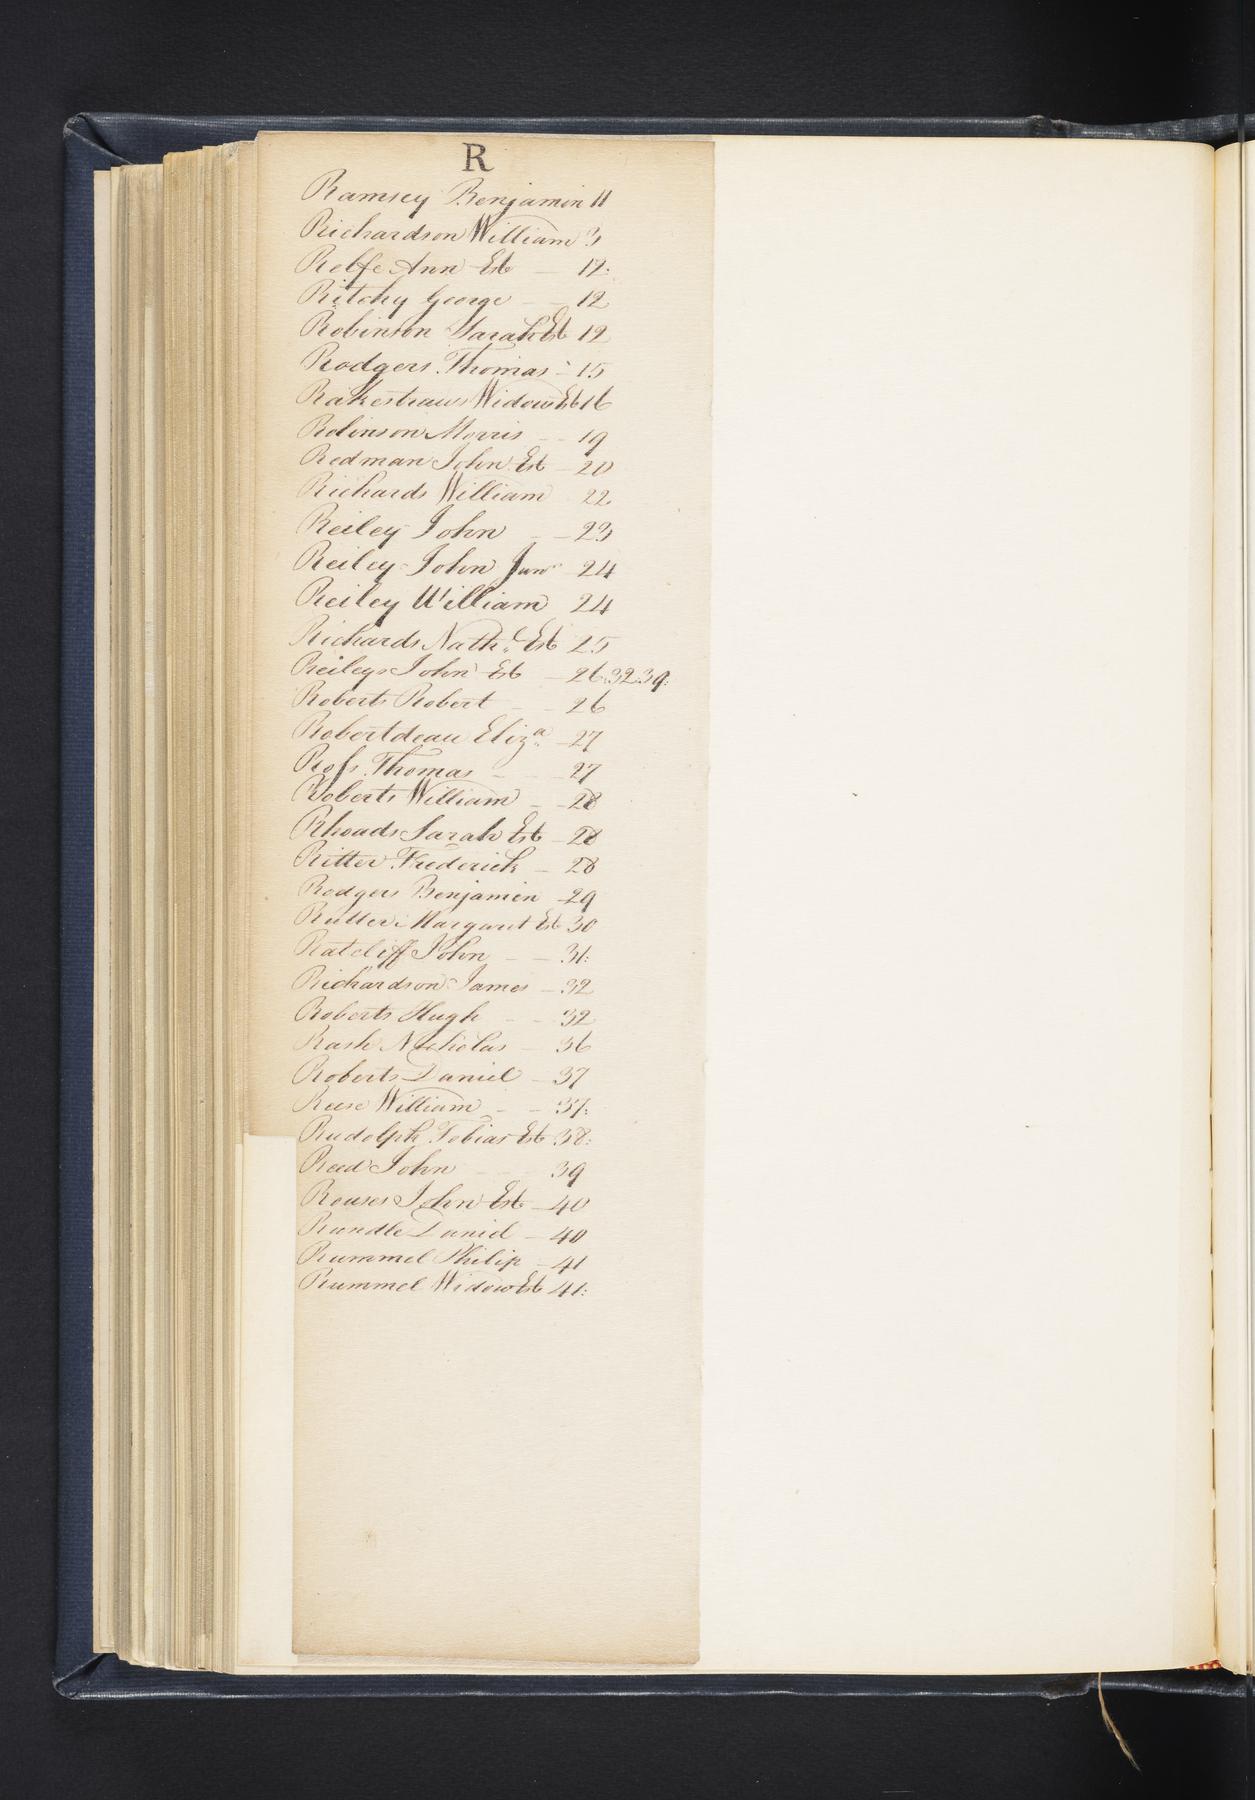 R
Ramsey Benjamin 11
Richardson William 3
Relfe Ann Est — 12:
Ritchy George — — 12
Robinson Sarah Est 12
Rodgers Thomas - 15
Rakestraws Widow Est 16
Robinson Morris — — 19
Redman John Est — 20
Richards William 22
Reiley John — — 23
Reiley John Junr 24
Reiley William 24
Richards Nathl Est 25
Reileys John Est — 26.32.39:
Roberts Robert — — 26
Robertdeau Eliza — 27
Rofs Thomas — — 27
Roberts William — — 28
Rhoads Sarah Est — 28
Ritter Frederick — 28
Rodgers Benjamin — 29
Rutter Margaret Est 30
Ratcliff John — — 31:
Richardson James — 32
Roberts Hugh — — 32
Rash Nicholas — 36
Roberts Daniel — 37
Reese William — — 37:
Rudolph Tobias Est 38:
Read John — — 39
Rouses John Est — 40
Rundle Daniel — 40
Rummel Philip — 41
Rummel Widow Est 41: